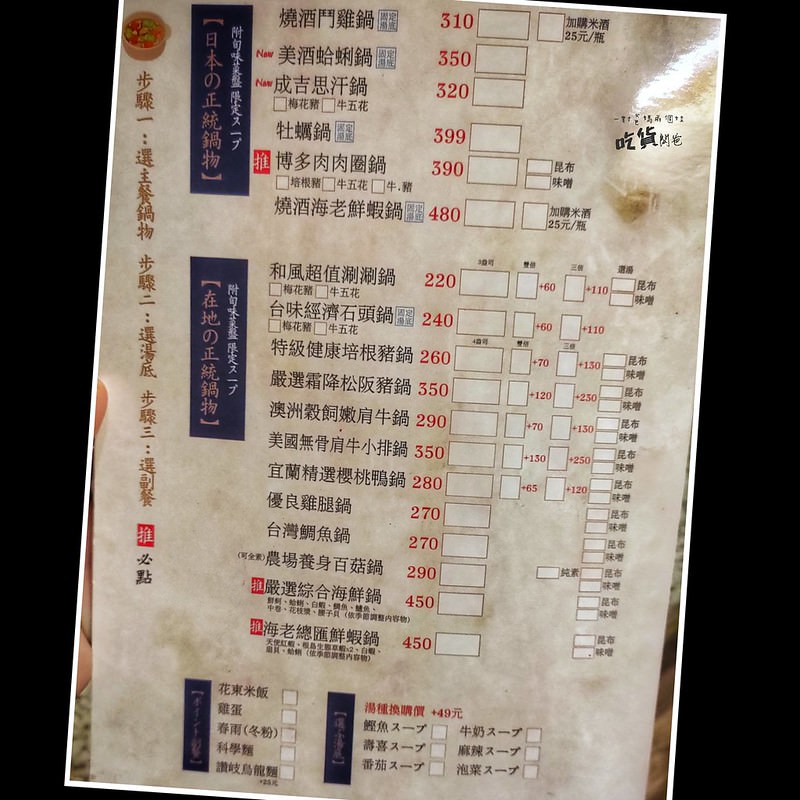 步驟一:選主餐鍋物 步驟二:選湯底 步驟三:選副餐
推 必點
附旬味菜盤 限定スープ
【日本の正統鍋物】
燒酒鬥雞鍋 固定湯底 310 加購米酒
25元/瓶
New 美酒蛤蜊鍋 固定湯底 350
New 成吉思汗鍋 320
梅花豬 牛五花
牡蠣鍋 固定湯底 399
推 博多肉肉圈鍋 390 昆布
味噌
培根豬 牛五花 牛.豬
燒酒海老鮮蝦鍋 固定湯底 480 加購米酒
25元/瓶
一對爸媽兩個娃
吃貨闆爸
附旬味菜盤 限定スープ
【在地の正統鍋物】
3盎司 雙倍 三倍 選湯
和風超值涮涮鍋 220 +60 +110 昆布
味噌
梅花豬 牛五花
台味經濟石頭鍋 固定湯底 240 +60 +110
梅花豬 牛五花
4盎司 雙倍 三倍
特級健康培根豬鍋 260 +70 +130 昆布
味噌
嚴選霜降松阪豬鍋 350 +120 +230 昆布
味噌
澳洲穀飼嫩肩牛鍋 290 +70 +130 昆布
味噌
美國無骨肩牛小排鍋 350 +130 +250 昆布
味噌
宜蘭精選櫻桃鴨鍋 280 +65 +120 昆布
味噌
優良雞腿鍋 270 昆布
味噌
台灣鯛魚鍋 270 昆布
味噌
(可全素)農場養身百菇鍋 290 純素 昆布
味噌
推 嚴選綜合海鮮鍋 450 昆布
味噌
鮮蚵、蛤蜊、白蝦、鯛魚、鱸魚、
中卷、花枝漿、腰子貝(依季節調整內容物)
推 海老總匯鮮蝦鍋 450 昆布
味噌
天使紅蝦、根島生態草蝦x2、白蝦、
扇貝、蛤蜊(依季節調整內容物)
花東米飯
雞蛋
春雨(冬粉)
科學麵
讚岐烏龍麵
+25元
湯種換購價 +49元
鰹魚スープ 牛奶スープ
壽喜スープ 麻辣スープ
番茄スープ 泡菜スープ